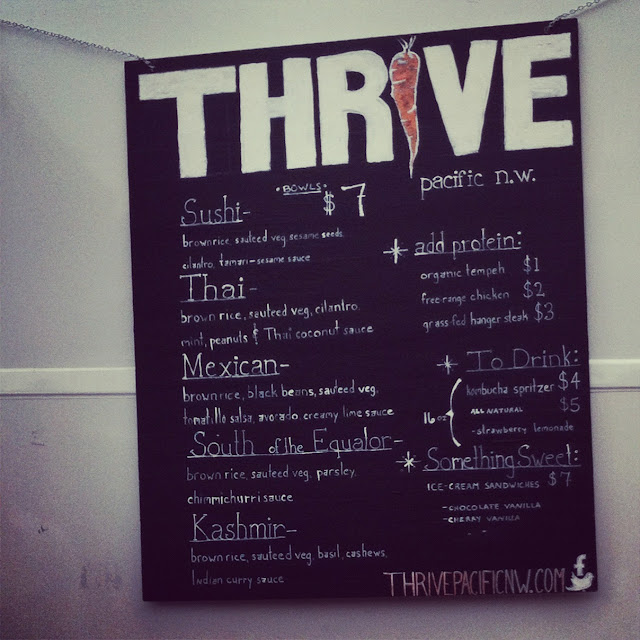 THRIVE
pacific n.w.
• BOWLS •
$7
Sushi-
brown rice, sauteed veg, sesame seeds,
cilantro, tamari-sesame sauce
Thai-
brown rice, sauteed veg, cilantro,
mint, peanuts & Thai coconut sauce
Mexican-
brown rice, black beans, sauteed veg,
tomatillo salsa, avocado, creamy lime sauce
South of the Equator-
brown rice, sauteed veg, parsley,
chimmichurri sauce
Kashmir-
brown rice, sauteed veg, basil, cashews,
Indian curry sauce
add protein:
organic tempeh $1
free-range chicken $2
grass-fed hanger steak $3
To Drink:
16 oz
kombucha spritzer $4
ALL NATURAL $5
- strawberry lemonade
Something Sweet:
ICE-CREAM SANDWICHES $7
- CHOCOLATE VANILLA
- CHERRY VANILLA
THRIVEPACIFICNW.COM
f